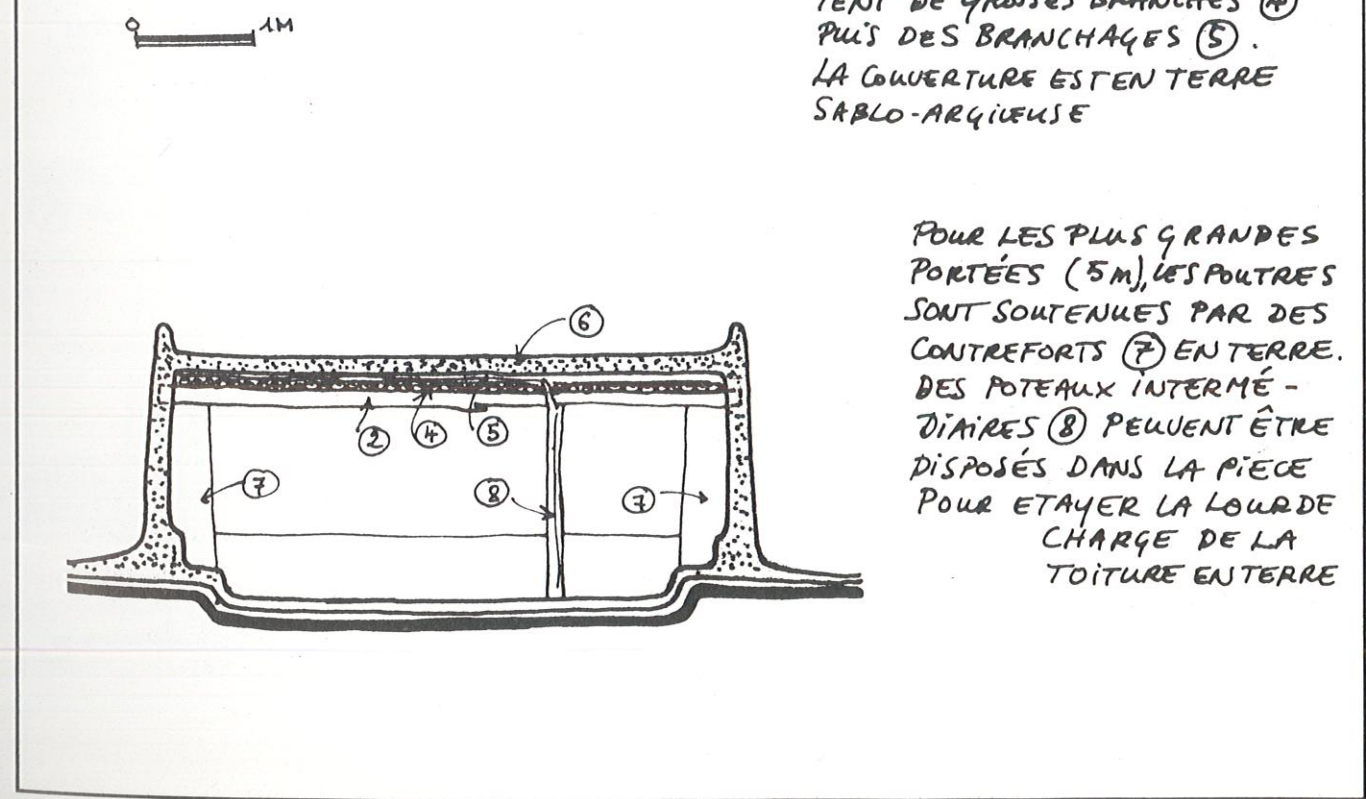 0 1M
TENT DE GROSSES BRANCHES ④
PUIS DES BRANCHAGES ⑤.
LA COUVERTURE EST EN TERRE
SABLO-ARGILEUSE
POUR LES PLUS GRANDES
PORTÉES (5M), LES POUTRES
SONT SOUTENUES PAR DES
CONTREFORTS ⑦ EN TERRE.
DES POTEAUX INTERMÉ-
DIAIRES ⑧ PEUVENT ÊTRE
DISPOSÉS DANS LA PIECE
POUR ETAYER LA LOURDE
CHARGE DE LA
TOITURE EN TERRE
⑥
② ④ ⑤
⑦ ⑧ ⑦